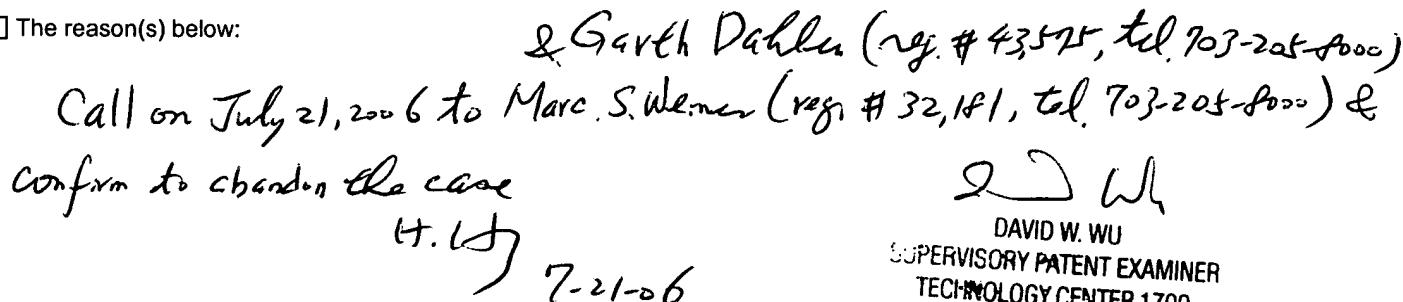 ] The reason(s) below:
& Garth Dahlen (reg. # 43,575, tel. 703-205-8000)
Call on July 21, 2006 to Marc. S. Weiner (reg. # 32,181, tel. 703-205-8000) &
confirm to abandon the case
H.
7-21-06
DAVID W. WU
SUPERVISORY PATENT EXAMINER
TECHNOLOGY CENTER 1700